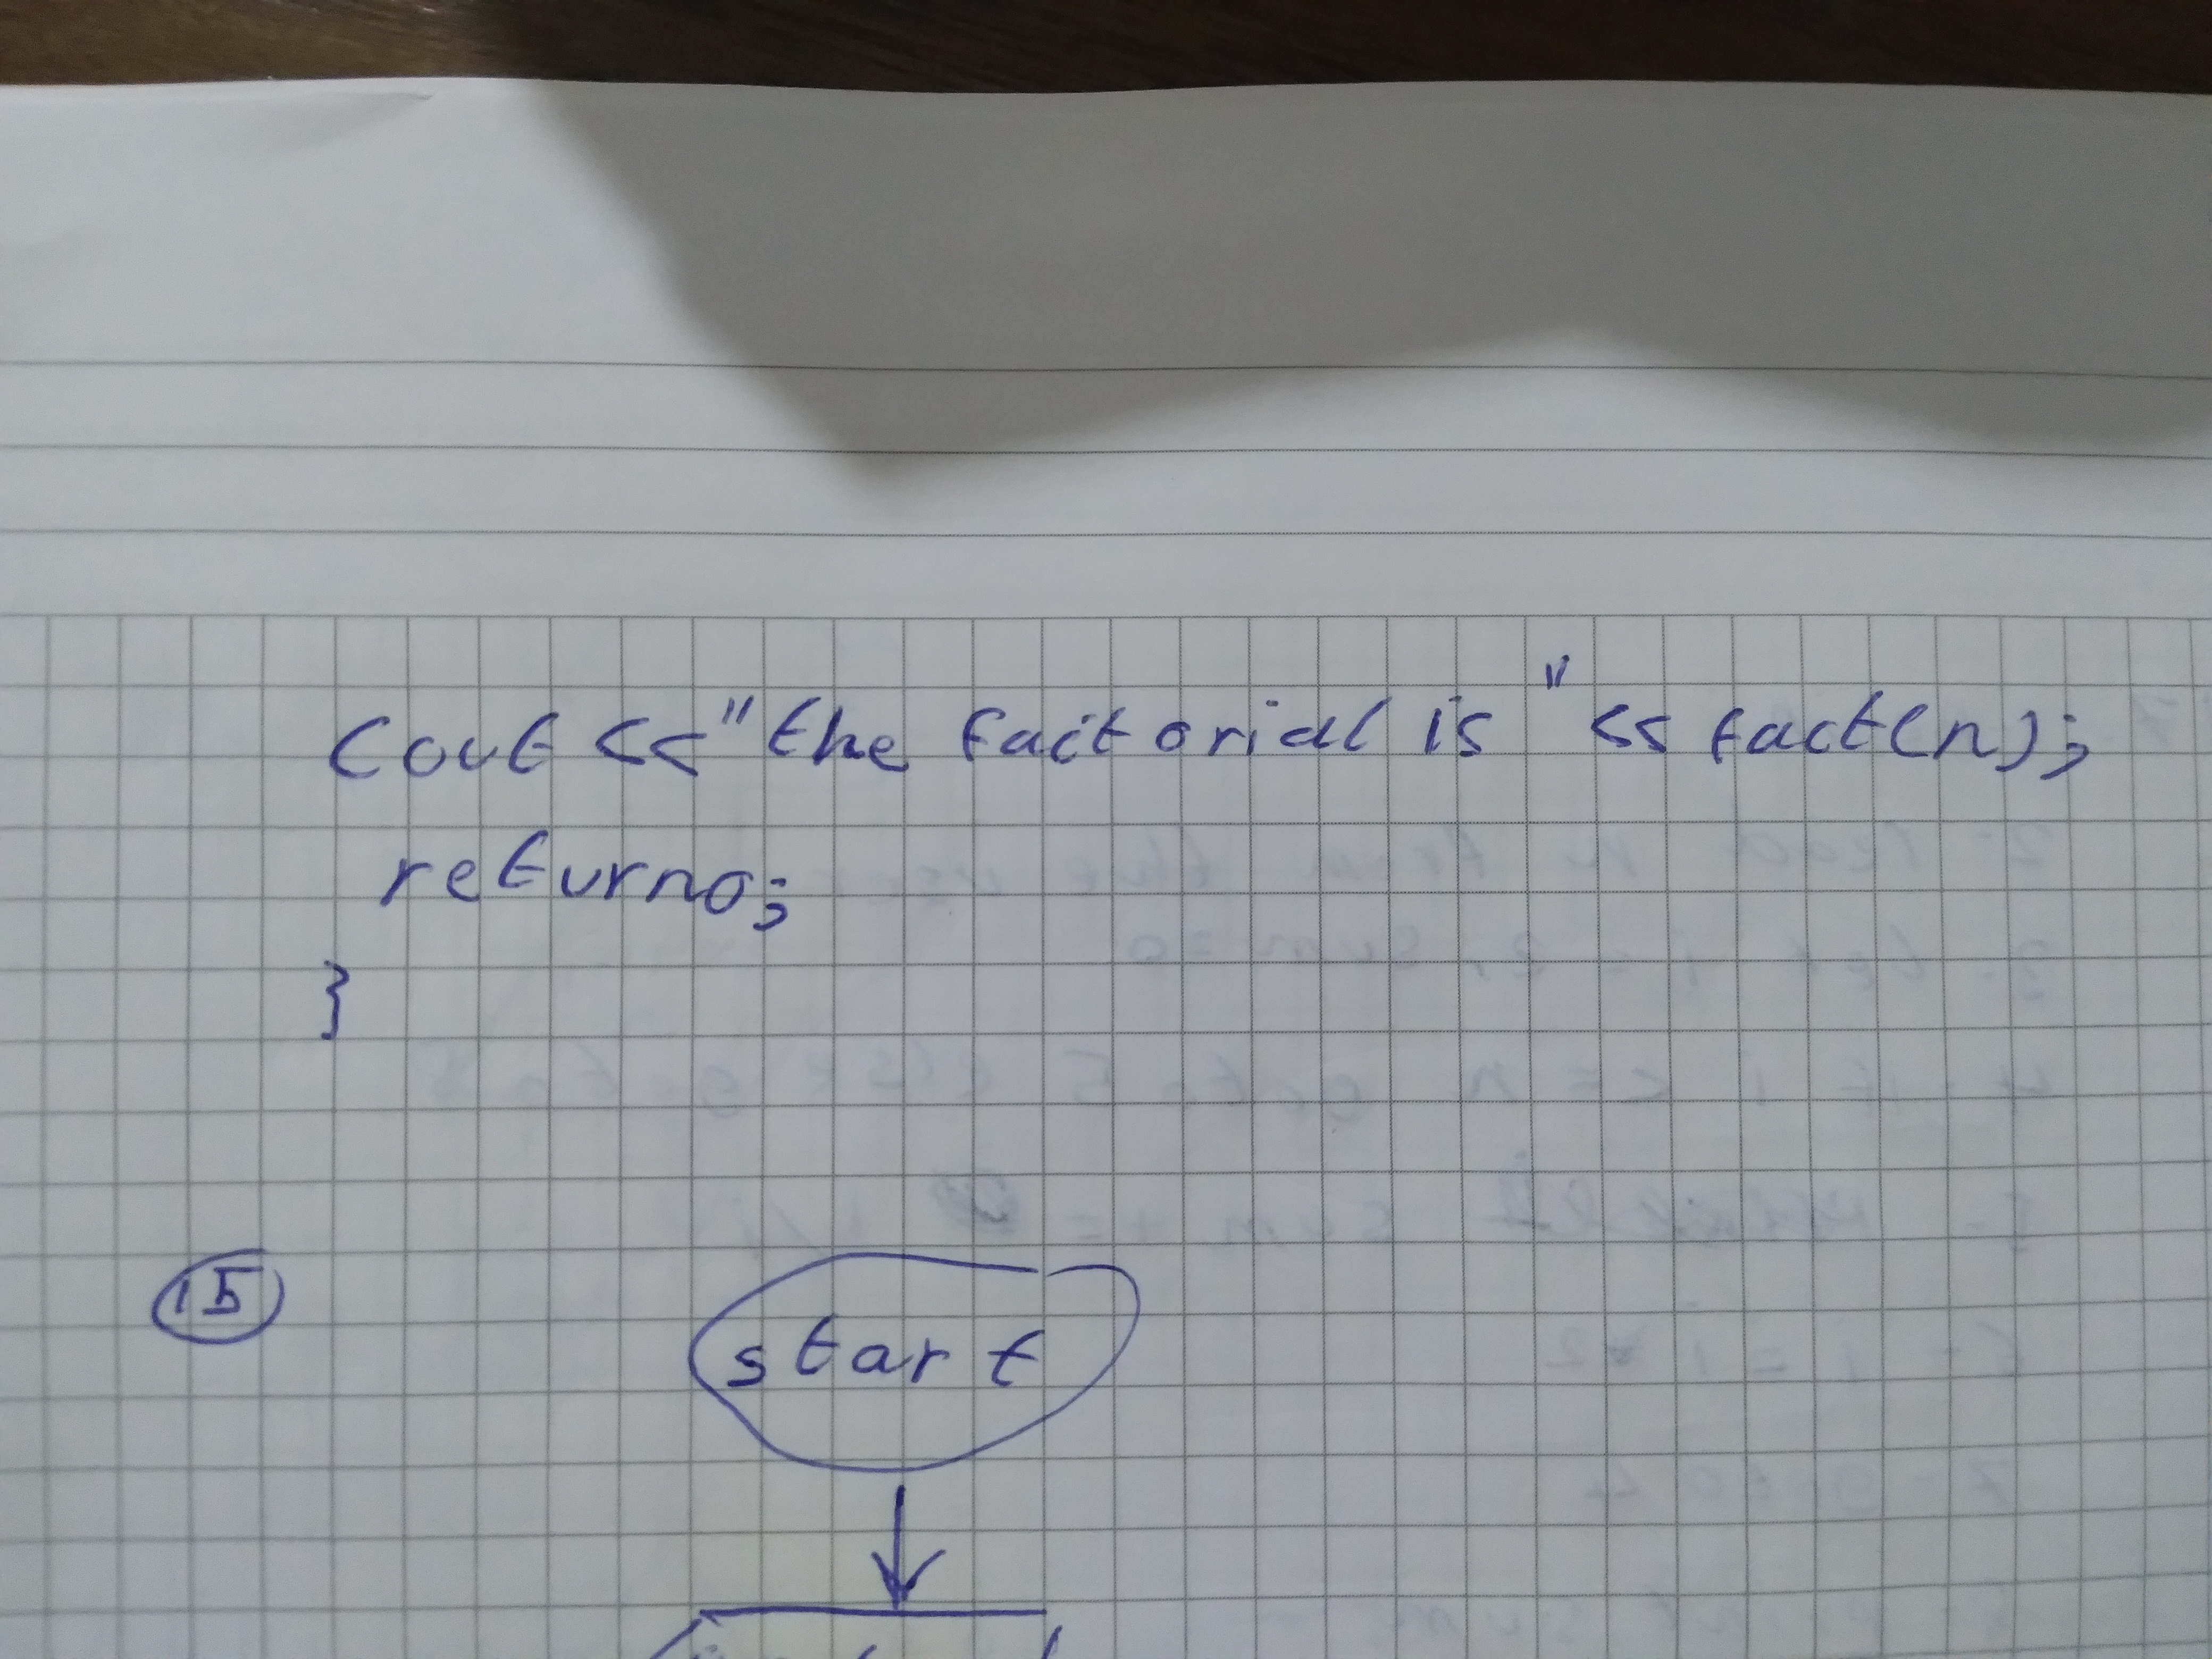 Cout << "the factorial is " << fact(n);
return0;
}
15
start